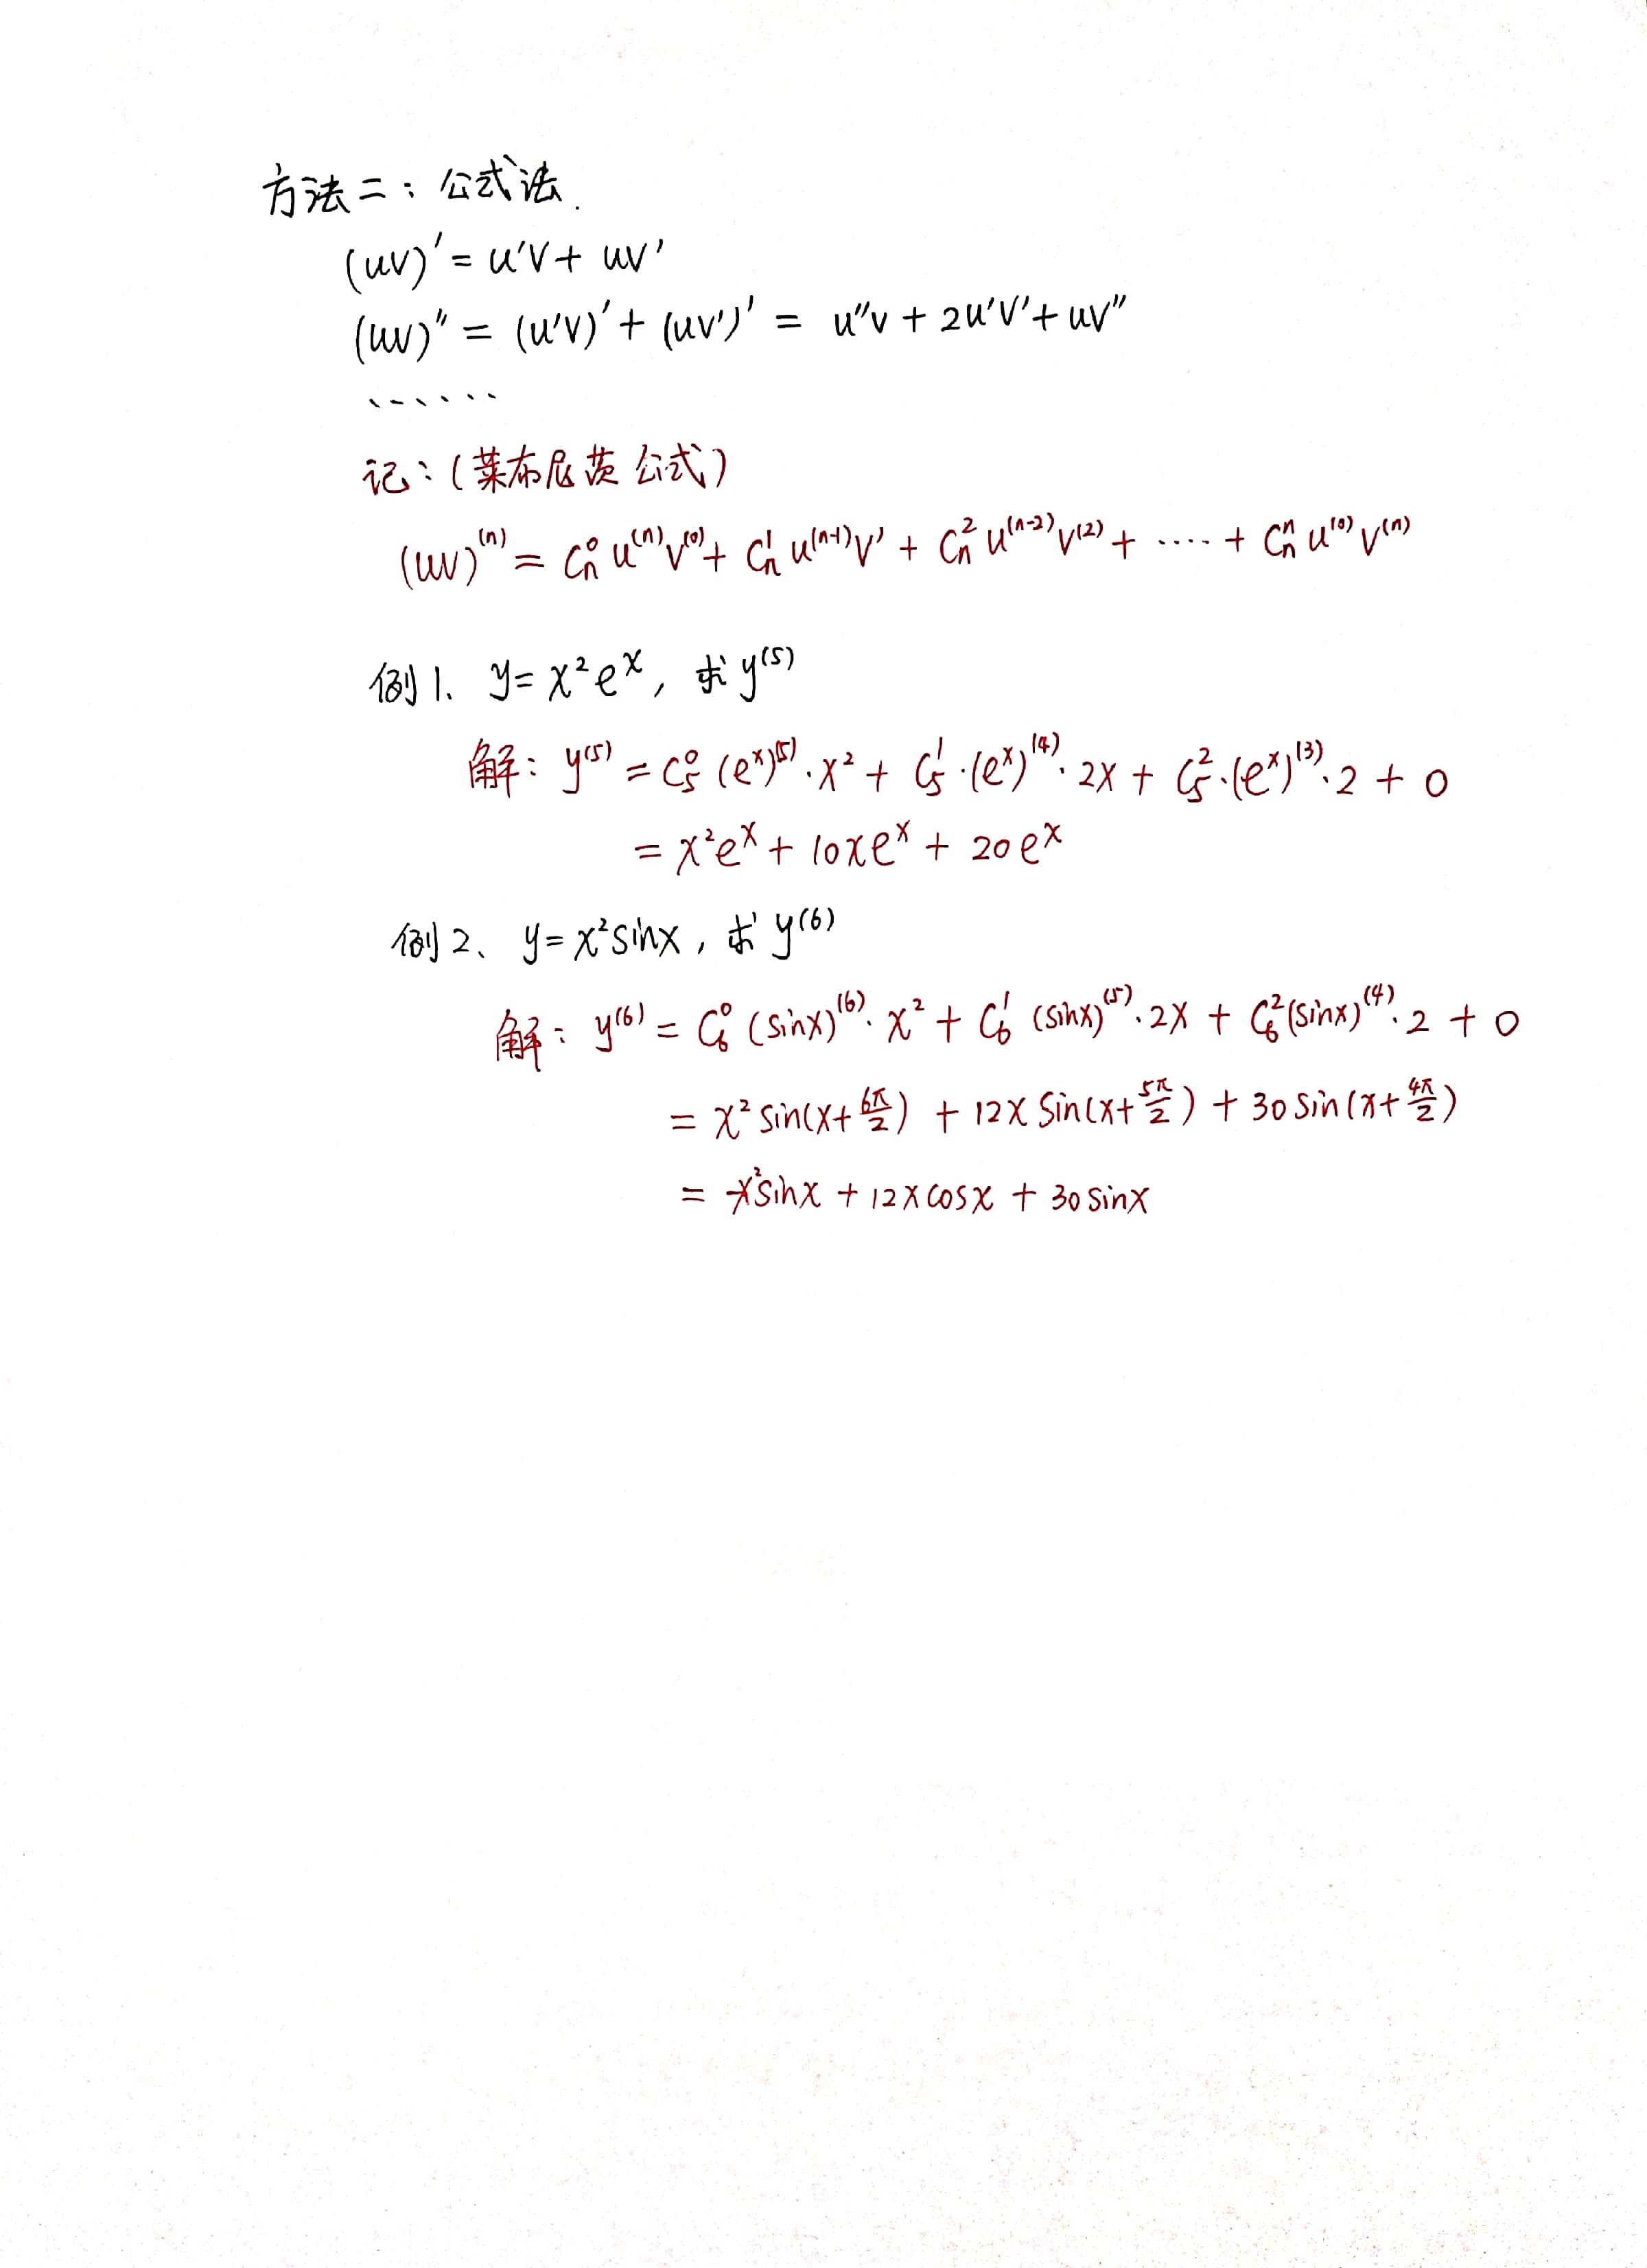 方法二：公式法.
(uv)' = u'v + uv'
(uv)'' = (u'v)' + (uv')' = u''v + 2u'v' + uv''
······
记：(莱布尼茨公式)
(uv)⁽ⁿ⁾ = Cₙ⁰ u⁽ⁿ⁾v⁽⁰⁾ + Cₙ¹ u⁽ⁿ⁻¹⁾v' + Cₙ² u⁽ⁿ⁻²⁾v⁽²⁾ + ···· + Cₙⁿ u⁽⁰⁾v⁽ⁿ⁾
例1、y = x²eˣ, 求y⁽⁵⁾
解：y⁽⁵⁾ = C₅⁰ (eˣ)⁽⁵⁾·x² + C₅¹·(eˣ)⁽⁴⁾·2x + C₅²·(eˣ)⁽³⁾·2 + 0
= x²eˣ + 10xeˣ + 20eˣ
例2、y = x²sinx, 求y⁽⁶⁾
解：y⁽⁶⁾ = C₆⁰ (sinx)⁽⁶⁾·x² + C₆¹ (sinx)⁽⁵⁾·2x + C₆²(sinx)⁽⁴⁾·2 + 0
= x² sin(x+6π/2) + 12x sin(x+5π/2) + 30 sin(x+4π/2)
= -x²sinx + 12xcosx + 30sinx